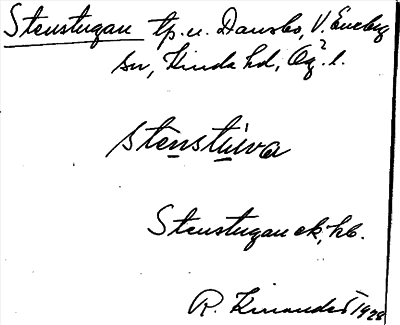 Stenstugan tp. u. Dansbo, V. Eneby
sn, Kinda hd, Ög. l.
stenstuva
Stenstugan ek, hb.
R. Kinander 1928